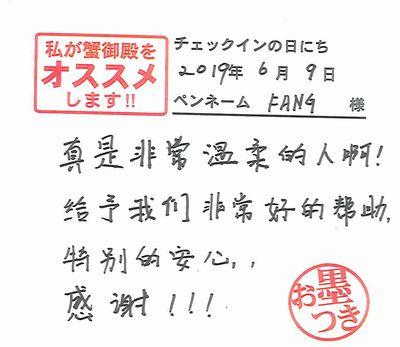 私が蟹御殿を
オススメ
します!!
チェックインの日にち
2019年 6月 9日
ペンネーム FANG 様
真是非常温柔的人啊!
给予我们非常好的帮助,
特别的安心,,
感谢!!!
お墨つき